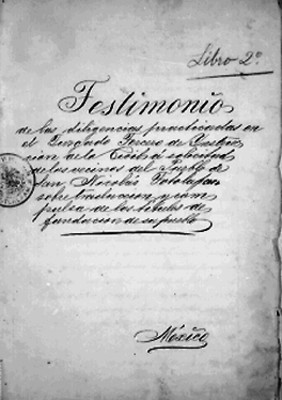 Libro 2º
Testimonio
de las diligencias practicadas en
el Juzgado Tercero de Instruc
cion de lo Civil á solicitud
de los vecinos del Pueblo de
San Nicolás Totolapan
sobre traduccion y com
pulsa de los titulos de
fundacion de su pueblo
México